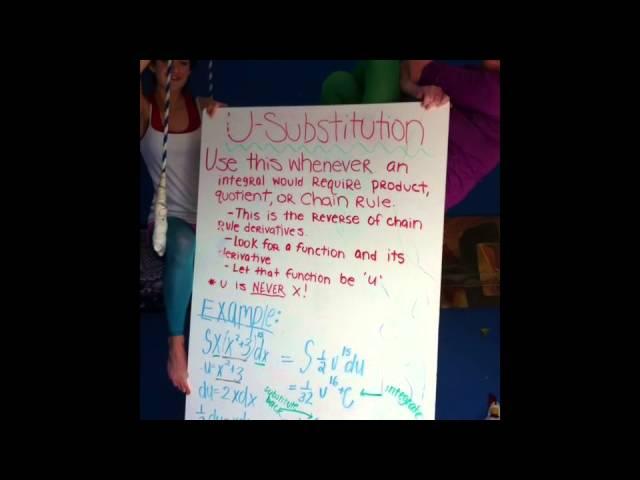 U-Substitution
Use this whenever an
integral would require product,
quotient, or chain rule.
- This is the reverse of chain
rule derivatives.
- Look for a function and its
derivative
- Let that function be 'u'
* u is NEVER x!
Example:
∫x(x²+3)¹⁵dx = ∫½ u¹⁵du
u=x²+3 = 1/32 u¹⁶+C integrate
du=2xdx substitute
back
½du=xdx